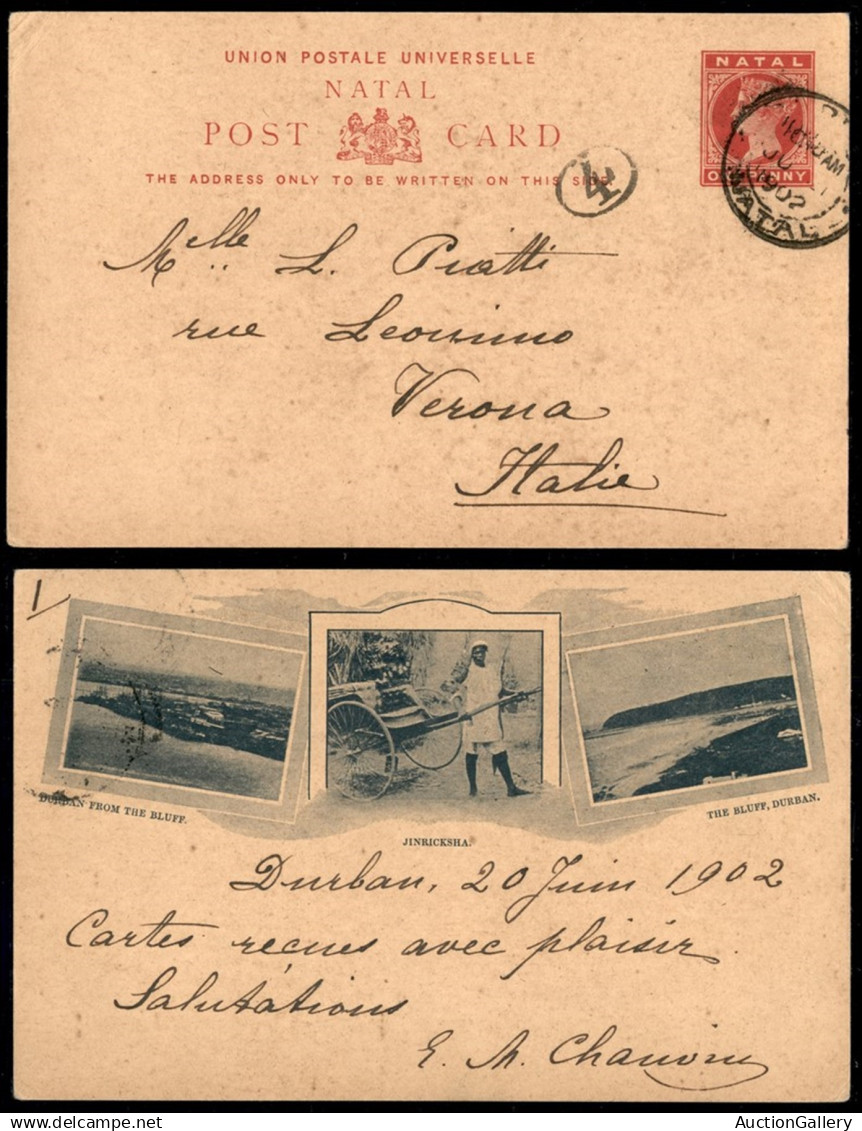 UNION POSTALE UNIVERSELLE
NATAL
POST CARD
THE ADDRESS ONLY TO BE WRITTEN ON THIS SIDE.
NATAL
ONE PENNY
1902
NATAL
4
Melle L. Piatti
rue
Verona
Italie
1
DURBAN FROM THE BLUFF.
JINRICKSHA.
THE BLUFF, DURBAN.
Durban, 20 Juin 1902
Cartes recues avec plaisir
Salutations
E. M.
AuctionGallery